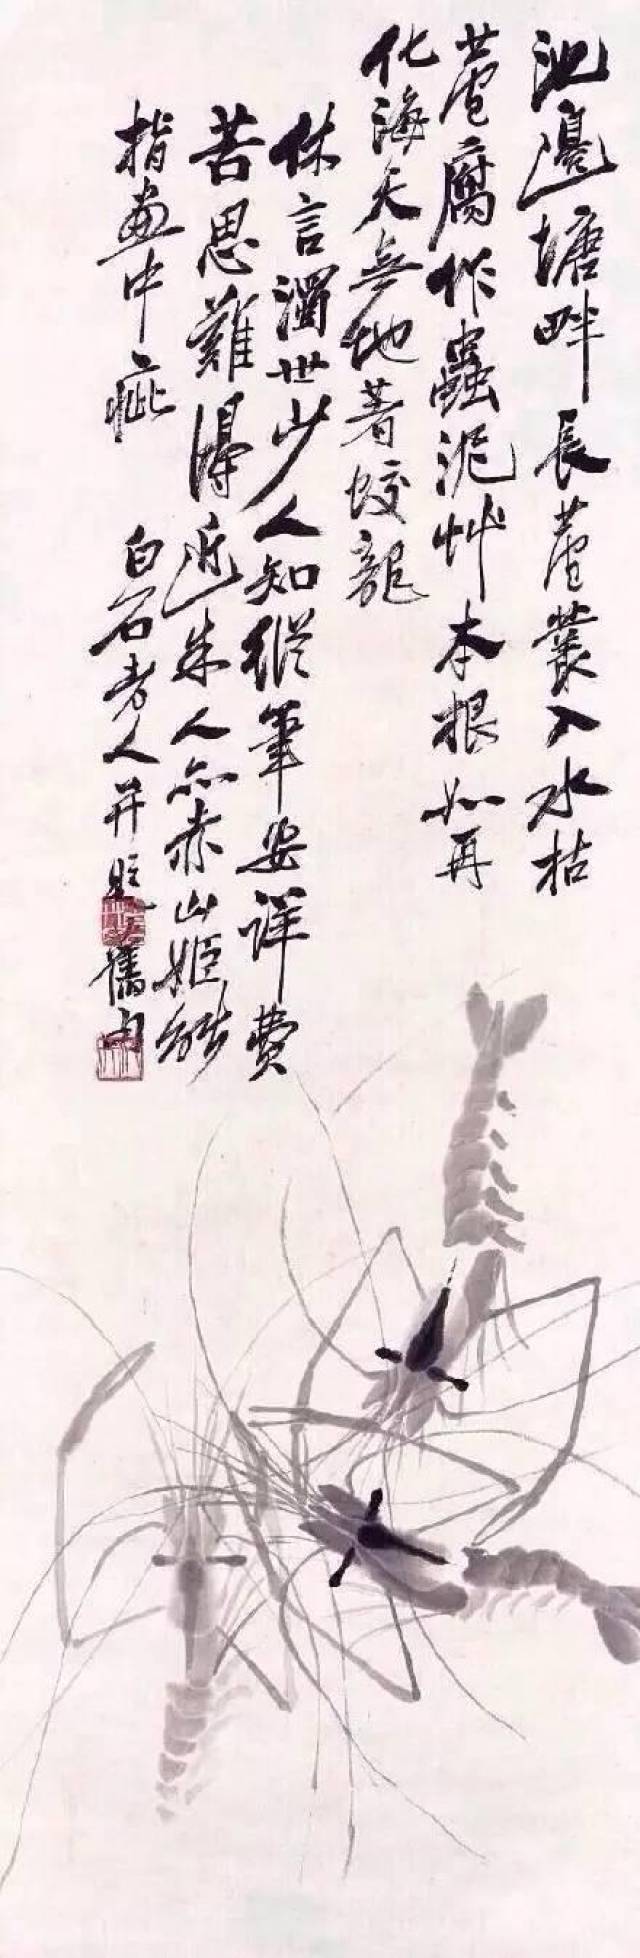 池邊塘畔長芦叢入水枯
芦腐作蟲泥艸本根如再
化海天無地著蛟龍
休言濁世少人知縱筆安詳費
苦思難得近朱人亦赤山姬能
指畫中疵
白石老人并題舊句